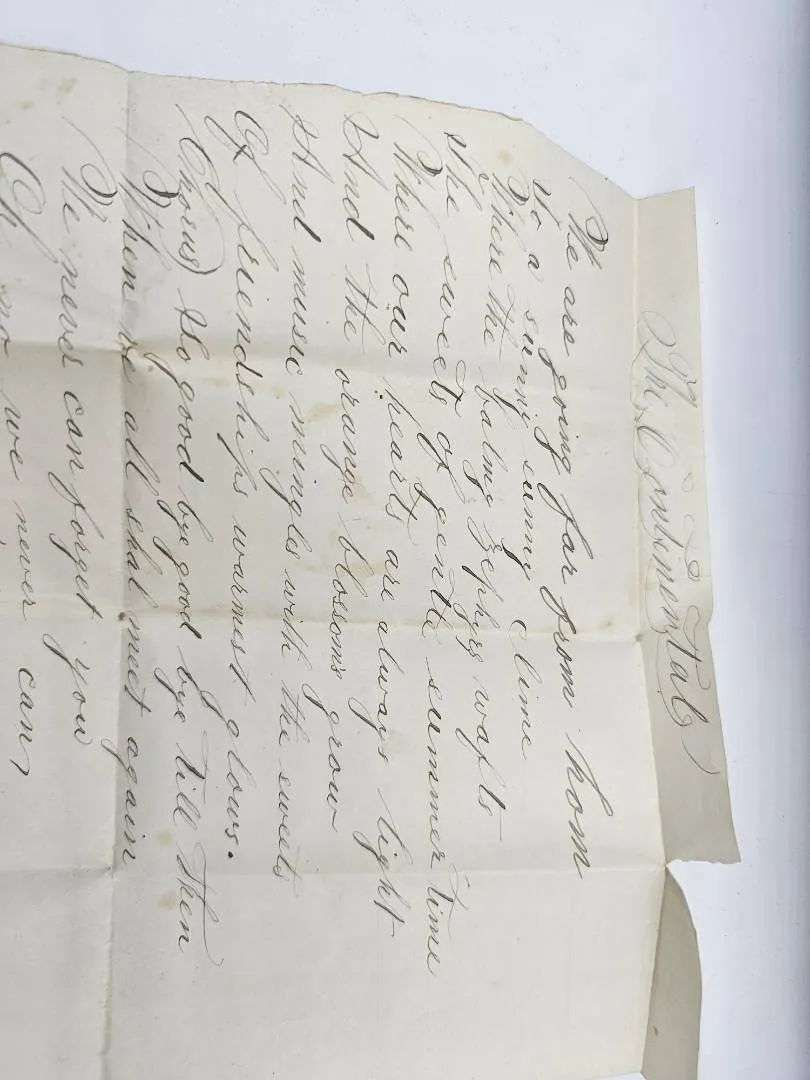 The Continental
We are going far from hom
to a sunny sunny clime
Where the balmy Zephyrs wafts
the sweets of gentle summer time
Where our hearts are always light
And the orange blossoms grow
And music mingles with the sweets
Of friendships warmest glows.
Chorus) So good bye good bye till then
When we all shal meet again
We never can forget you
Oh no we never can,